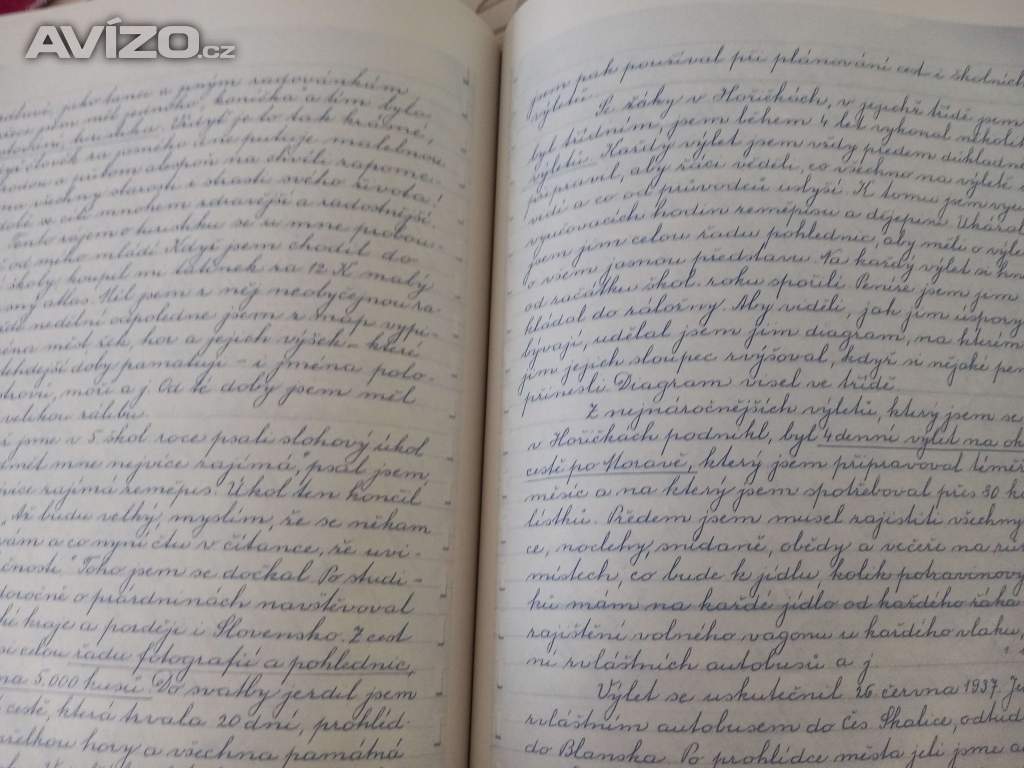 AVÍZO.cz
jako tanec a jiným radovánkám
jsem měl jediného "koníčka" a tím byla
turistika. Vždyť je to tak krásné,
když člověk za jasného dne putuje malebnou
a přitom alespoň na chvíli zapome-
na všechny starosti i strasti svého života!
se cítí mnohem zdravější a radostnější.
Tento zájem o turistiku se ve mne probou-
od mého mládí. Když jsem chodil do
školy koupil mi tatínek za 12 K malý
atlas. Měl jsem z něj neobyčejnou ra-
nedělní odpoledne jsem z map vypi-
měd řek, hor a jejich výšek - které
doby pamatuji - i jména polo-
moří a j. Od té doby jsem měl
velkou zálibu.
jsme v 5. škol roce psali slohový úkol
mne nejvíce zajímá," psal jsem,
zajímá zeměpis. Úkol ten končil
"Až budu velký, myslím, že se někam
a co nyní čtu v čítance, že uvi-
Toho jsem se dočkal. Po studi-
o prázdninách navštěvoval
kraje a později i Slovensko. Z cest
si celou řadu fotografií a pohlednic,
na 5.000 kusů. Do svatby jezdil jsem
cestě, která trvala 20 dní, prohléd-
hory a všechna památná
jsem pak používal při plánování cest i školních
výletů.
Se žáky v Hoříčkách, v jejichž třídě jsem
byl třídním, jsem během 4 let vykonal několik
výletů. Každý výlet jsem vždy předem důkladně
připravil, aby žáci věděli, co všechno na výletě
vidí a co od průvodců uslyší. K tomu jsem
vyučovacích hodin zeměpisu a dějepisu. Ukázal
jsem jim celou řadu pohlednic, aby měli o výletě
o všem jasnou představu. Na každý výlet si
od začátku škol. roku spořili. Peníze jsem jim
kládal do záložny. Aby viděli, jak jim úspory
bývají, udělal jsem jim diagram, na kterém
jim jejich sloupec zvýšoval, když si nějaké
přinesli. Diagram visel ve třídě.
Z nejnáročnějších výletů, který jsem se
v Hoříčkách podnikl, byl 4denní výlet na
cestě po Moravě, který jsem připravoval téměř
měsíc a na který jsem spotřeboval přes 30
lístků. Předem jsem musel zajistiti všechny
ce, noclehy, snídaně, obědy a večeře na
místech, co bude k jídlu, kolik potravinový
ků mám na každé jídlo od každého žáka
zajištění volného vagonu u každého vlaku,
ní zvláštních autobusů a j.
Výlet se uskutečnil 26. června 1937.
zvláštním autobusem do Čes. Skalice,
do Blanska. Po prohlídce města jeli jsme